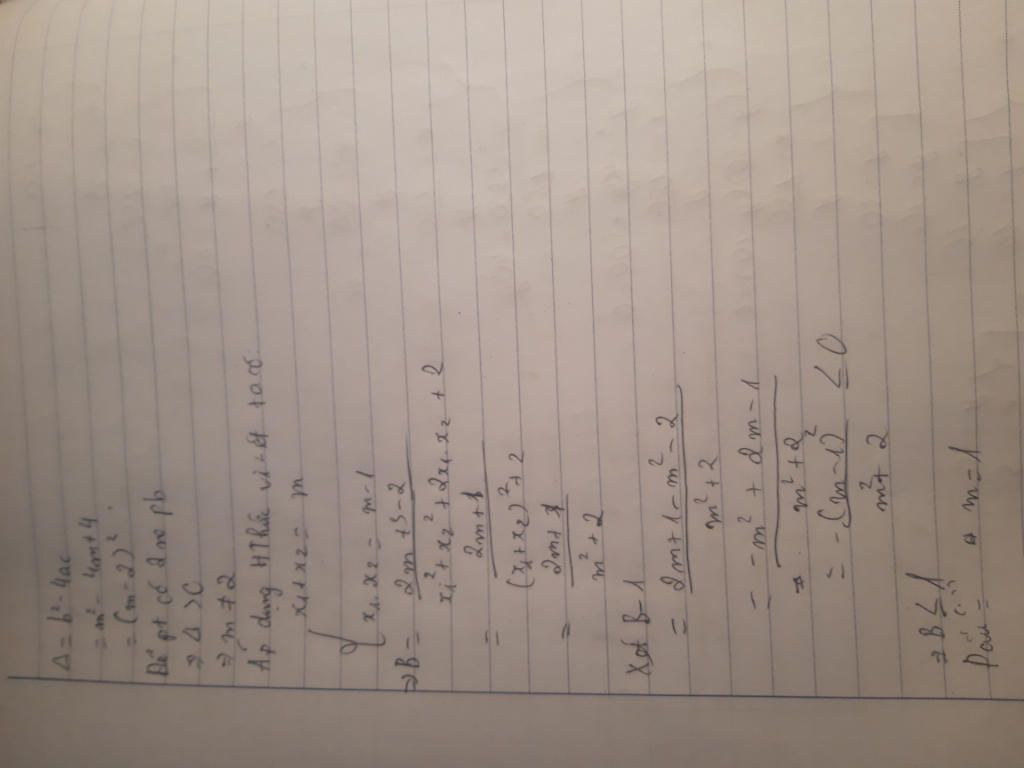 Δ = b² - 4ac
= m² - 4m + 4
= (m - 2)²
Để pt có 2 no pb
⇒ Δ > 0
⇒ m ≠ 2
Áp dụng HThức vi-ét ta có:
{ x₁ + x₂ = m
x₁ . x₂ = m - 1
⇒ B = (2m + 3 - 2) / (x₁² + x₂² + 2x₁.x₂ + 2)
= (2m + 1) / ((x₁ + x₂)² + 2)
= (2m + 1) / (m² + 2)
Xét B - 1
= (2m + 1 - m² - 2) / (m² + 2)
= (-m² + 2m - 1) / (m² + 2)
= -(m - 1)² / (m² + 2) ≤ 0
⇒ B ≤ 1
Dấu "=" ⇒ m = 1